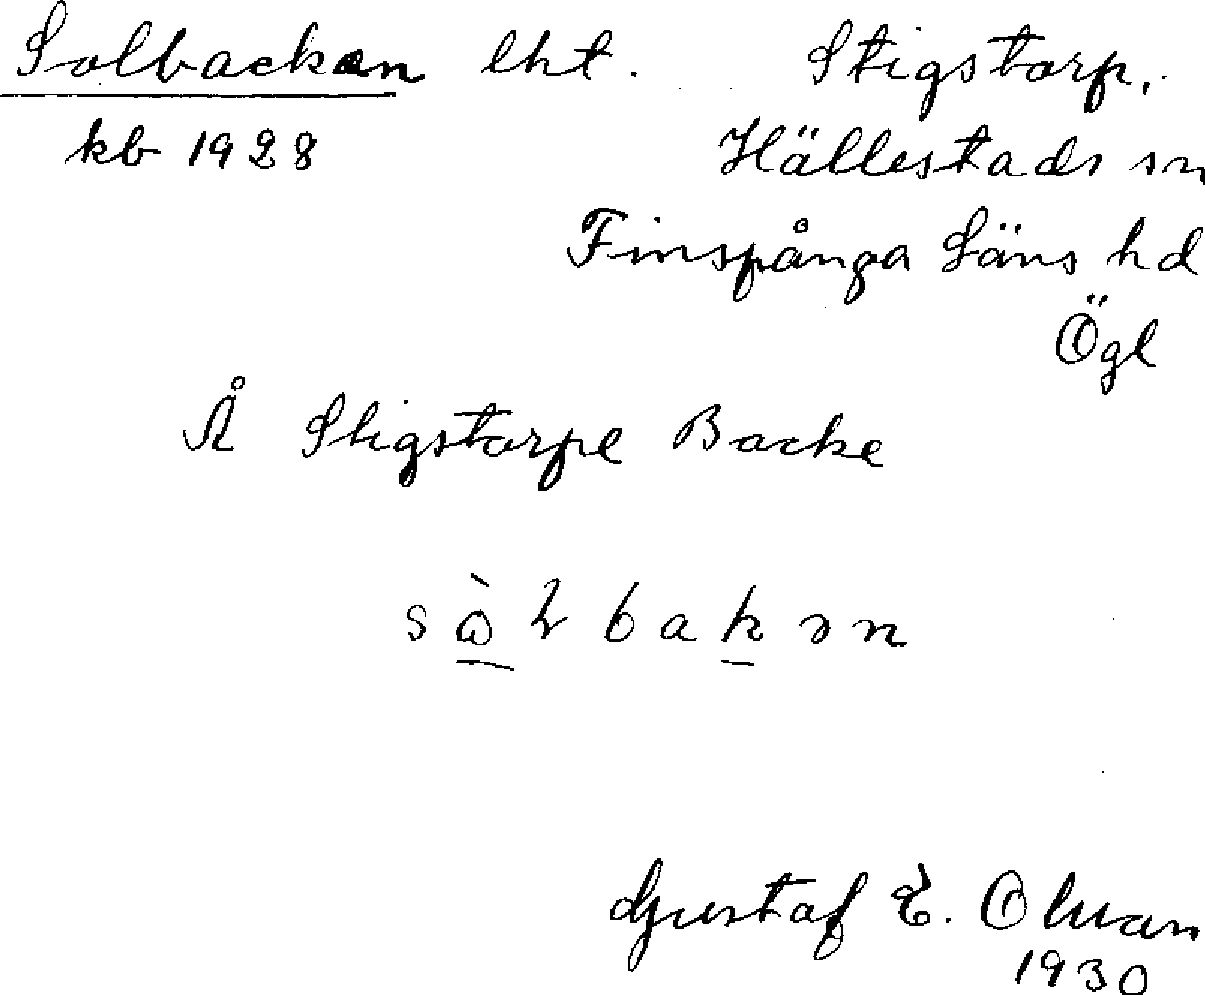 Solbacken lht. Stigstorp,
kb 1928 Hällestads sn
Finspånga Läns hd
Ögl
Å Stigstorps Backe
Gustaf E. Olsson
1930